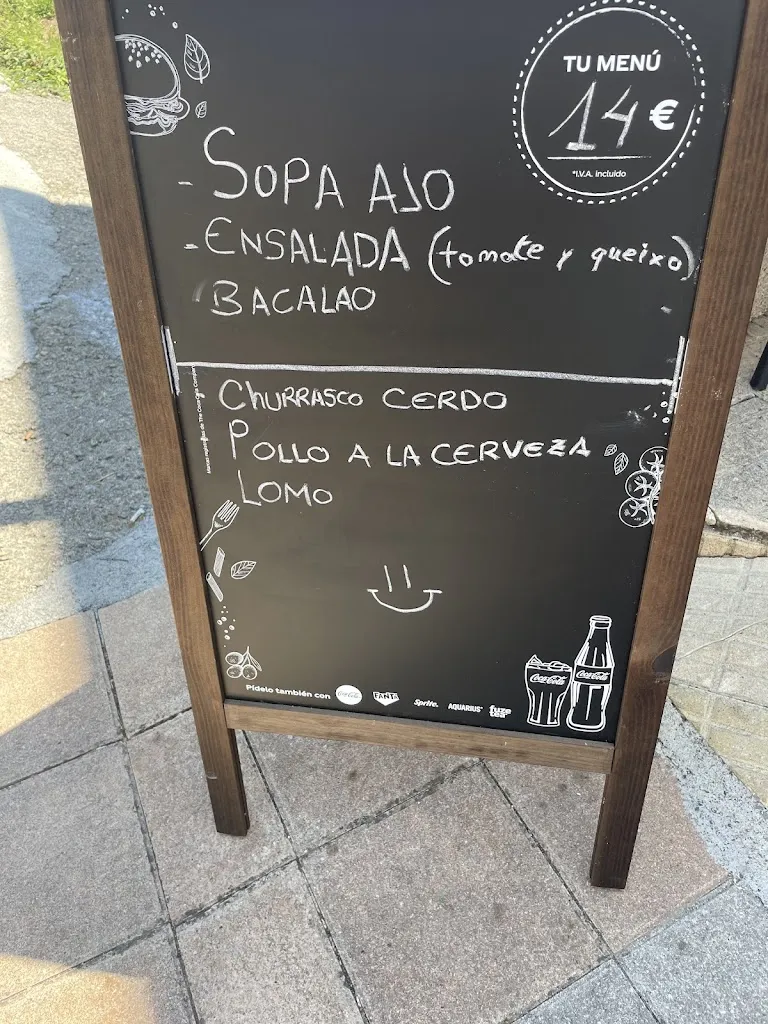 TU MENÚ
14 €
*I.V.A. incluido
- SOPA AJO
- ENSALADA (tomate y queixo)
BACALAO
CHURRASCO CERDO
POLLO A LA CERVEZA
LOMO
Marcas registradas de The Coca-Cola Company
Coca-Cola
Coca-Cola
Pídelo también con Coca-Cola FANTA Sprite. AQUARIUS fuze tea